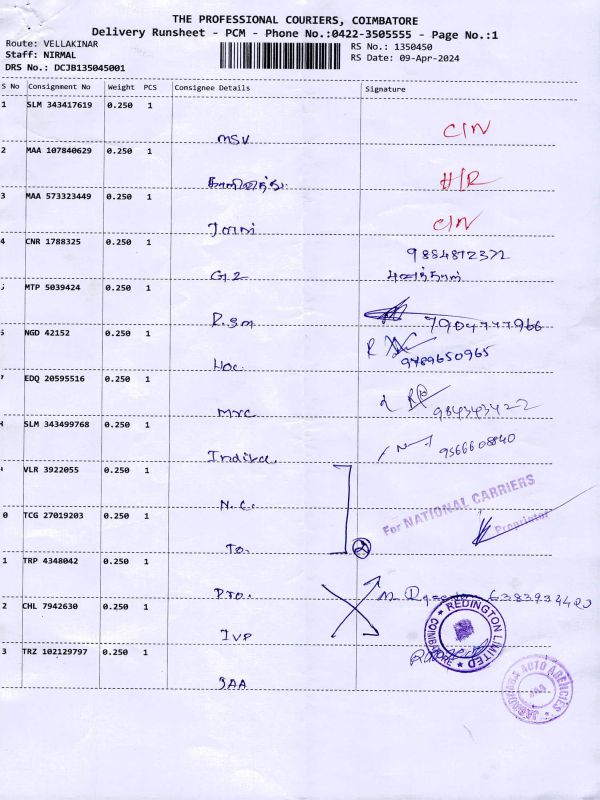 THE PROFESSIONAL COURIERS, COIMBATORE
Delivery Runsheet - PCM - Phone No.:0422-3505555 - Page No.:1
Route: VELLAKINAR
RS No.: 1350450
Staff: NIRMAL
RS Date: 09-Apr-2024
DRS No.: DCJB135045001
S No Consignment No Weight PCS Consignee Details Signature
1 SLM 343417619 0.250 1
MSV C/N
2 MAA 107840629 0.250 1
H/R
3 MAA 573323449 0.250 1
C/N
4 CNR 1788325 0.250 1
9884812372
G2
MTP 5039424 0.250 1
R.sm 7904777966
NGD 42152 0.250 1
Hoc 9789650965
EDQ 20595516 0.250 1
MYC
SLM 343499768 0.250 1
9566608840
Indika
VLR 3922055 0.250 1
N.C. For NATIONAL CARRIERS
0 TCG 27019203 0.250 1
Proprietor
To. 2
1 TRP 4348042 0.250 1
Pro.
2 CHL 7942630 0.250 1
IVP REDINGTON LIMITED COIMBATORE
3 TRZ 102129797 0.250 1
JAA AUTO AGENCIES